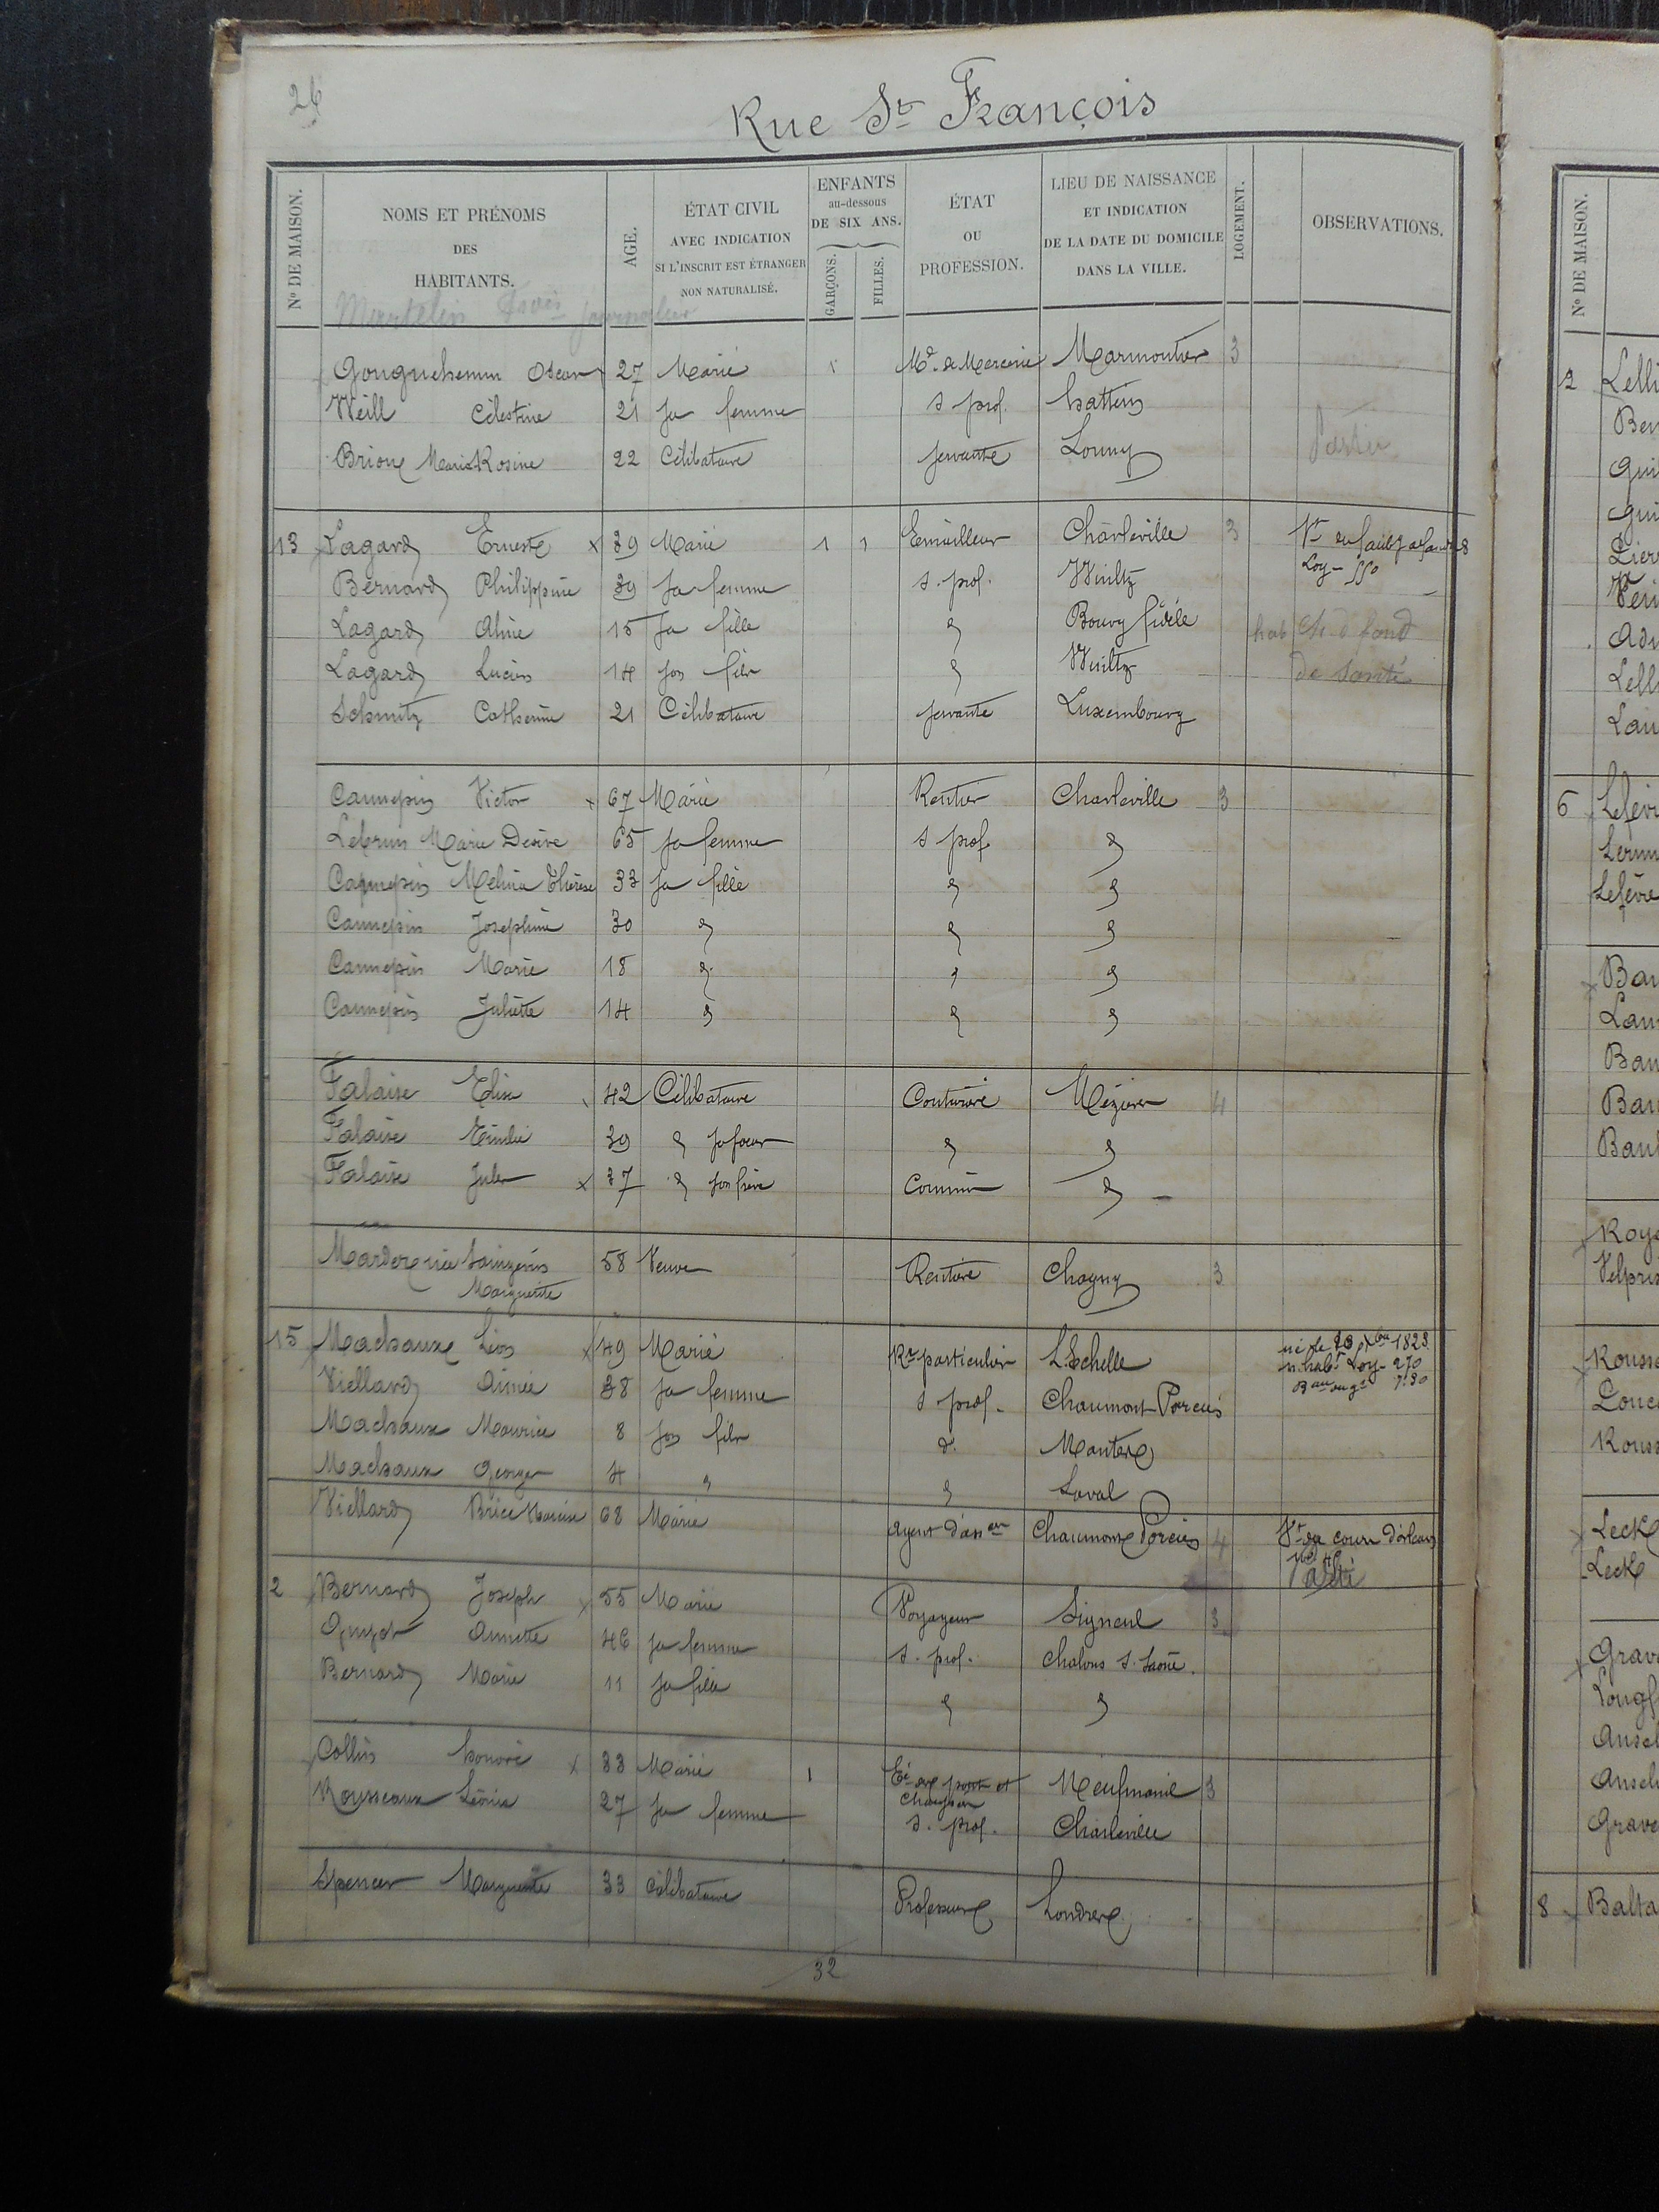 26
Rue St François
Nº DE MAISON.
NOMS ET PRÉNOMS
DES
HABITANTS.
AGE.
ÉTAT CIVIL
AVEC INDICATION
SI L'INSCRIT EST ÉTRANGER
NON NATURALISÉ.
ENFANTS
au-dessous
DE SIX ANS.
GARÇONS.
FILLES.
ÉTAT
OU
PROFESSION.
LIEU DE NAISSANCE
ET INDICATION
DE LA DATE DU DOMICILE
DANS LA VILLE.
LOGEMENT.
OBSERVATIONS.
Gouguehemm Oscar 27 Marié Md. de Mercerie Marmoutier 3
Weill Célestine 21 sa femme s prof. hatten
Brion Marie Rosine 22 Célibataire servante Louny
13 Lagard Ernest x 39 Marié 1 1 Emailleur Charleville 3
Bernard Philippine 39 sa femme s. prof. Wiltz
Lagard Aline 15 sa fille " Bourg fidèle hab
Lagard Lucien 14 son fils " Wiltz de santé
Schmitz Catherine 21 Célibataire servante Luxembourg
Cannepin Victor x 67 Marié Rentier Charleville 3
Lebrun Marie Désiré 65 sa femme s prof "
Cannepin Melina Thérèse 33 sa fille " "
Cannepin Josephine 30 " " "
Cannepin Marie 18 " " "
Cannepin Juliette 14 " " "
Falaise Elisa 42 Célibataire Couturière Mézières 4
Falaise Emélie 39 " sa soeur " "
Falaise Jules x 37 " son frère Commis "
58 Veuve Rentière Chagny 3
Marguerite
15 Machaux Léon x 49 Marié Rr particulier L'Echelle
Viellard Aimée 38 sa femme s prof. Chaumont Porcien
Machaux Maurice 8 son fils d. Nanterre
Machaux Georges 4 " " Laval
Viellard Brice Narcisse 68 Marié agent d'asson Chaumont Porcien 4
2 Bernard Joseph x 55 Marié Voyageur Signeul 3
Guyot Annette 46 sa femme s. prof. Chalons s. Saône.
Bernard Marie 11 sa fille " "
Collin honoré x 33 Marié 1 Eé des ponts et Neufmanil 3
Chaussées
Rousseaux Léonie 27 sa femme s. prof. Charleville
Spencer Marguerite 33 Célibataire Professeur Londres
32
Nº DE MAISON.
2 Lelli
Ber
6 Lefèv
Lefèvre
Ban
Lam
Ban
Ban
Roya
Rousse
Rouss
Leck
Grav
Longf
Ansel
Ansel
Grave
8 Balta